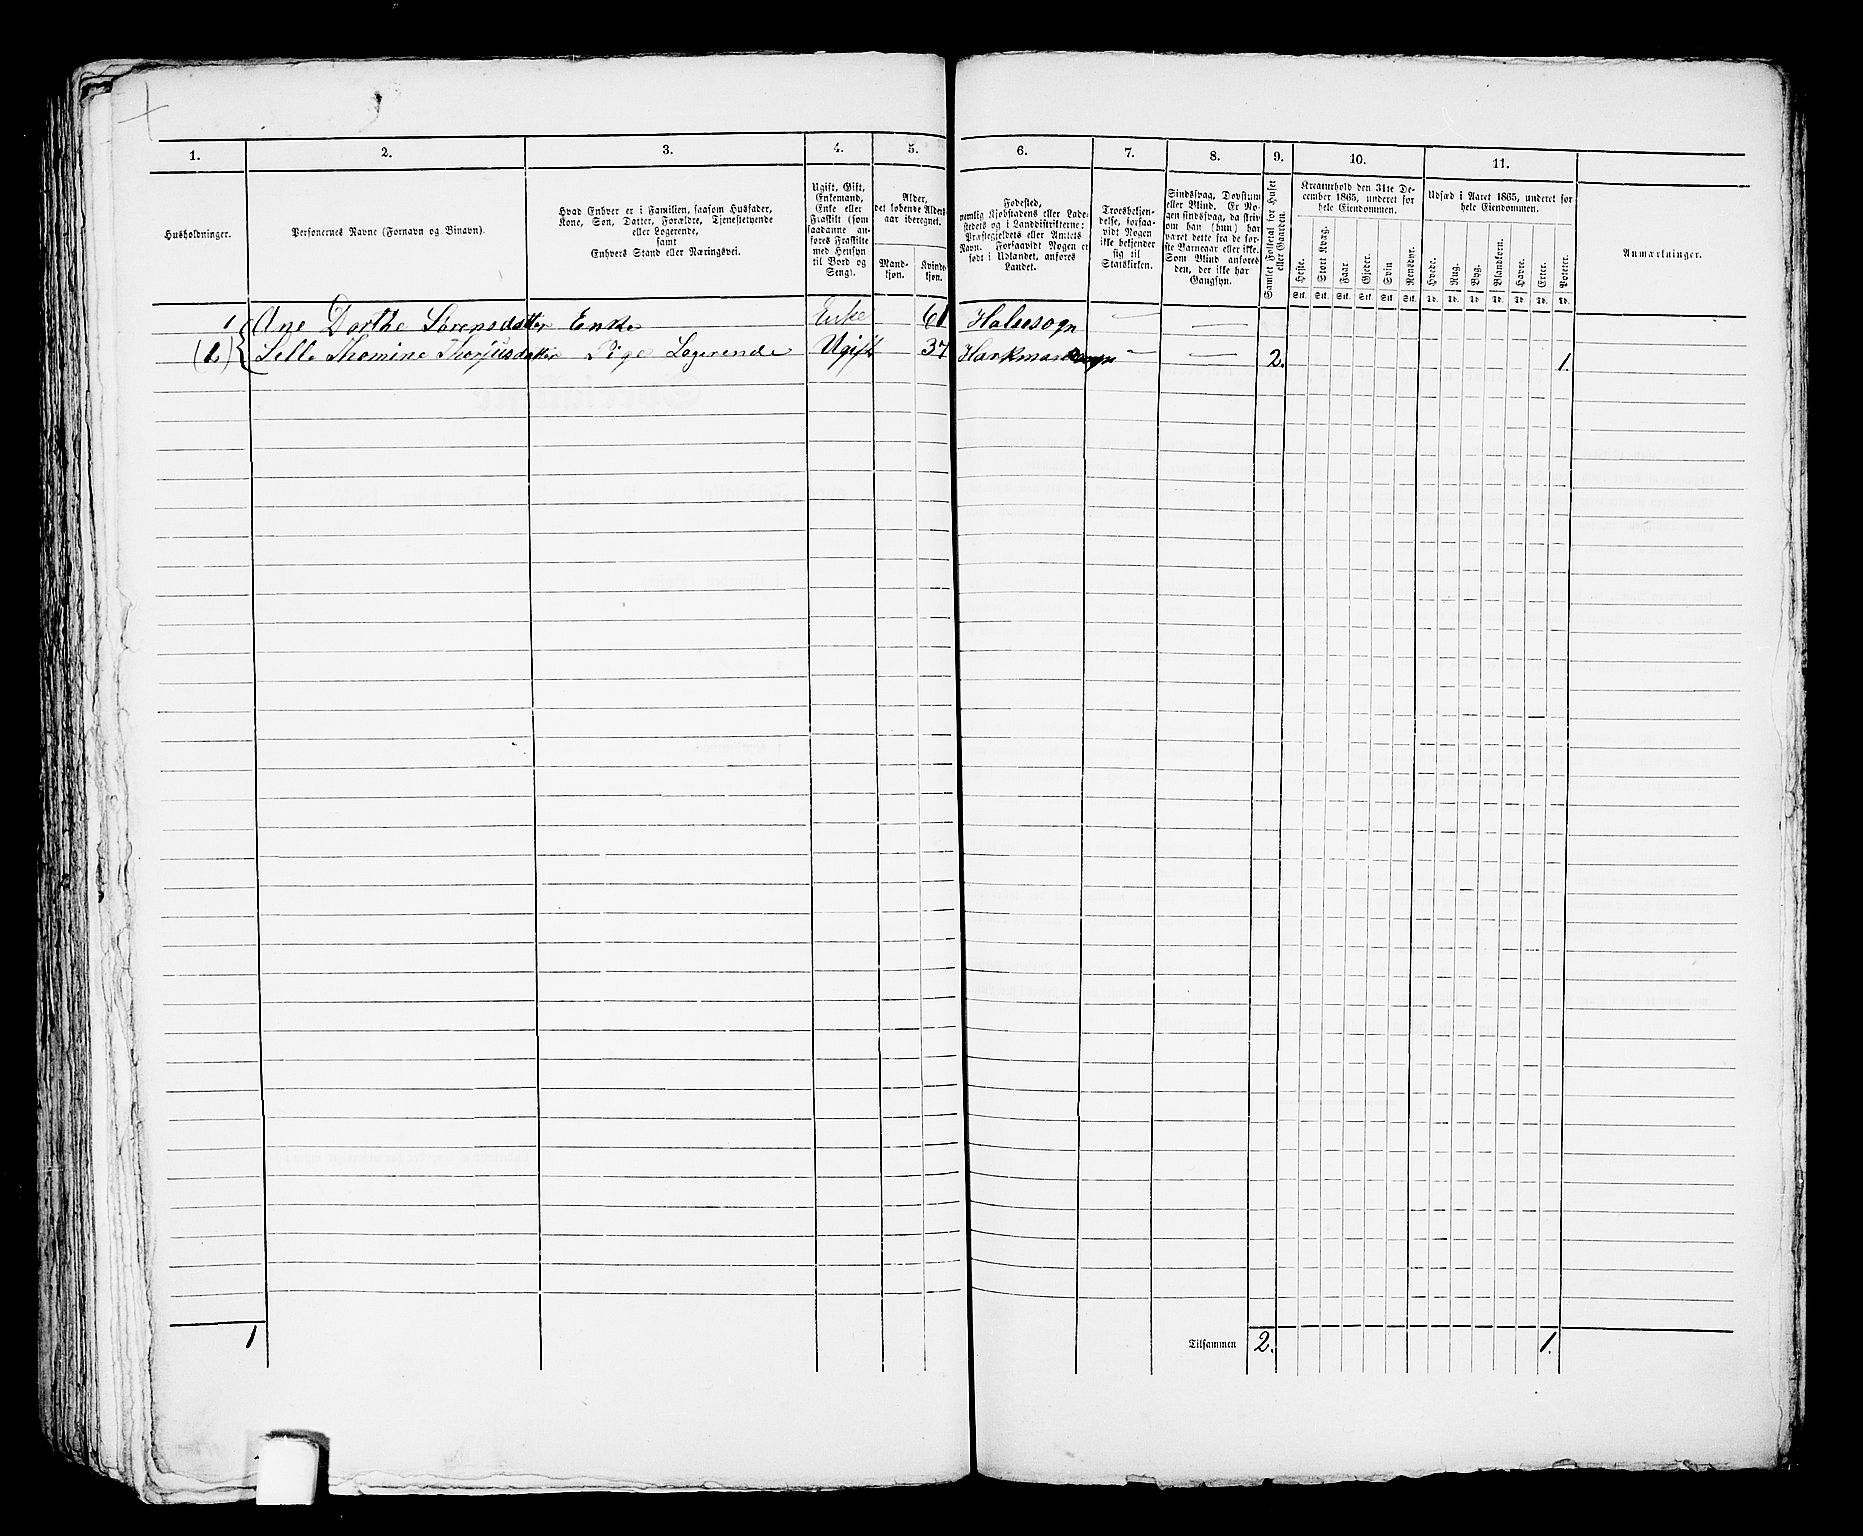 1. 2. 3. 4. 5. 6. 7. 8. 9. 10. 11.
Husholdninger.
Personernes Navne (Fornavn og Binavn).
Hvad Enhver er i Familien, saasom Husfader,
Kone, Søn, Datter, Forældre, Tjenestetyende
eller Logerende,
samt
Enhvers Stand eller Næringsvei.
Ugift, Gift,
Enkemand,
Enke eller
Fraskilt (som
saadanne an-
føres Fraskilte
med Hensyn
til Bord og
Seng).
Alder,
det løbende Alders-
aar iberegnet.
Mand-
kjøn.
Kvinde-
kjøn.
Fødested,
nemlig Kjøbstadens eller Lade-
stedets og i Landdistrikterne:
Præstegjeldets eller Amtets
Navn. Forsaavidt Nogen er
født i Udlandet, anføres
Landet.
Troesbekjen-
delse, forsaa-
vidt Nogen
ikke bekjender
sig til
Statskirken.
Sindssvag, Døvstum
eller Blind. Er No-
gen sindssvag, da skriv
om han (hun) har
været dette fra de før-
ste Barneaar eller ikke.
Som Blind anføres
den, der ikke har
Gangsyn.
Samlet Folketal for Huset
eller Gaarden.
Kreaturhold den 31te De-
cember 1865, underet for
hele Eiendommen.
Heste. Stort Kvæg. Faar. Gjeder. Svin Rensdyr.
Stk. Stk. Stk. Stk. Stk. Stk.
Udsæd i Aaret 1865, underet for
hele Eiendommen.
Hvede. Rug. Byg. Blandkorn. Havre. Erter. Poteter.
Td. Td. Td. Td. Td. Td. Td.
Anmærkninger.
1 Ane Dorthe Sørensdatter Enke Enke 61 Halsesogn — —
(2) Selle Thomine Thorjusdatter Pige Logerende Ugift 37 — — 2. 1.
1 Tilsammen 2. 1.